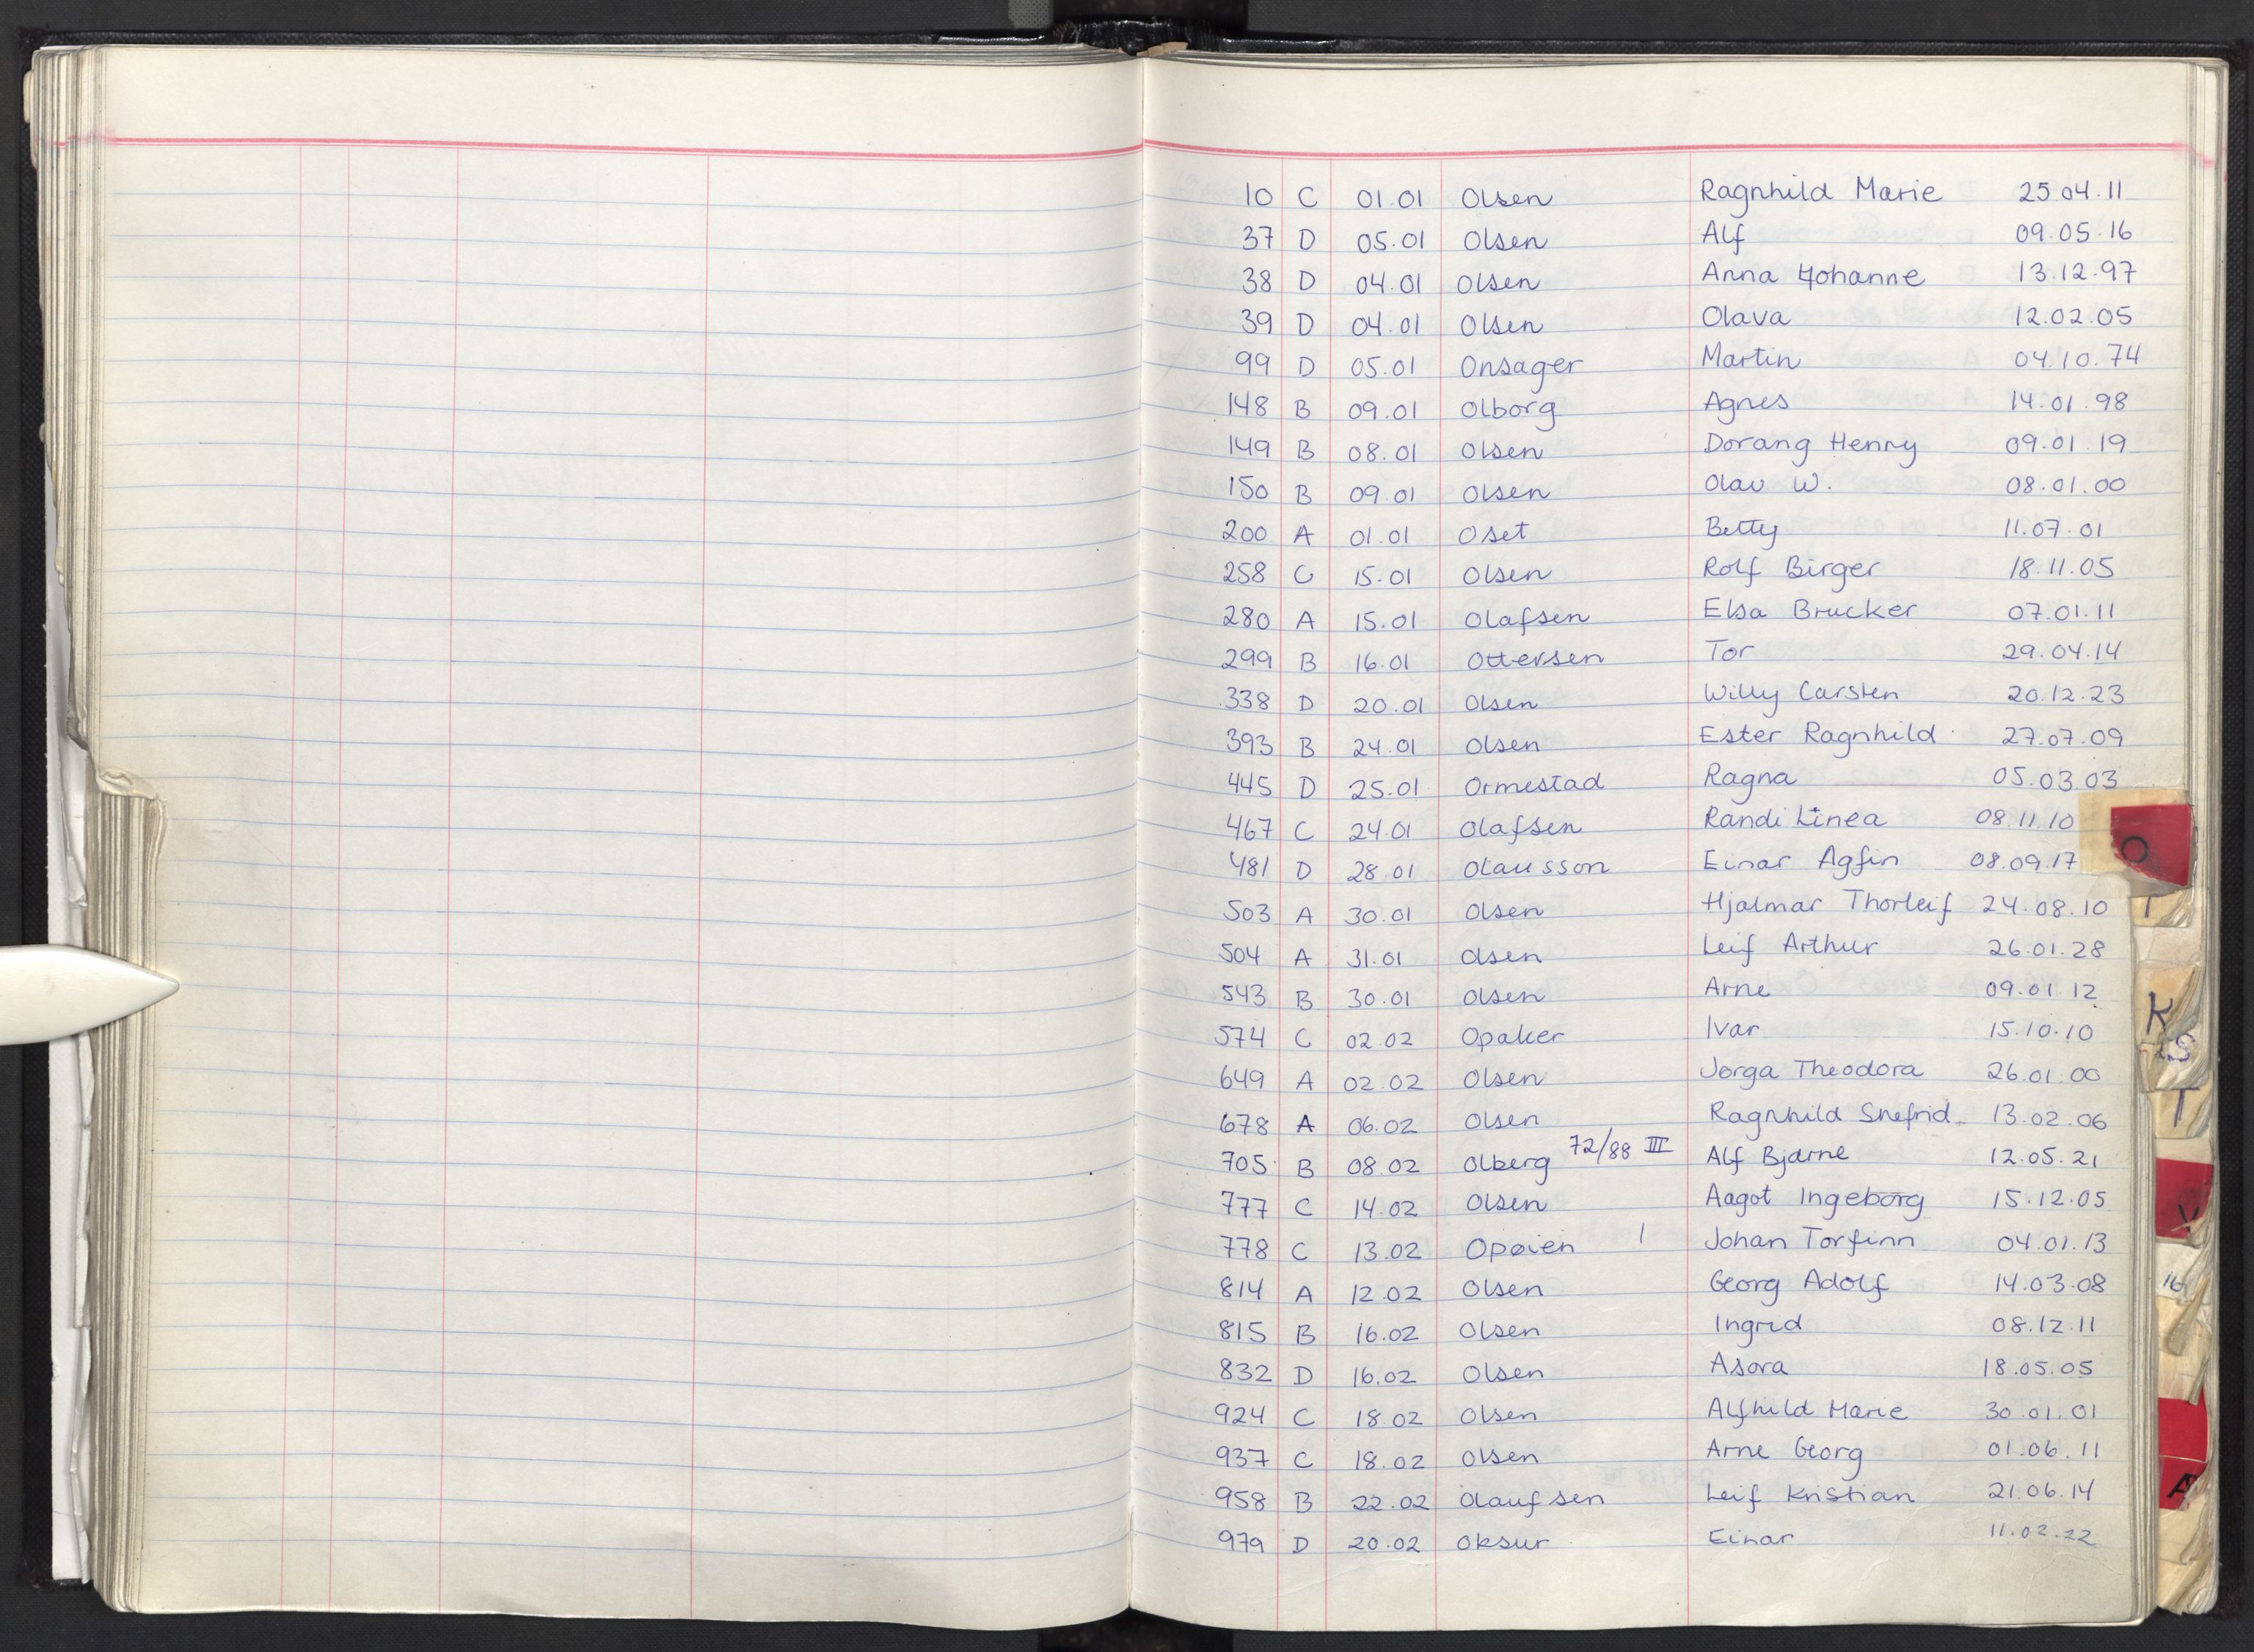 10 C 01.01 Olsen Ragnhild Marie 25.04.11
37 D 05.01 Olsen Alf 09.05.16
38 D 04.01 Olsen Anna Johanne 13.12.97
39 D 04.01 Olsen Olava 12.02.05
99 D 05.01 Onsager Martin 04.10.74
148 B 09.01 Olborg Agnes 14.01.98
149 B 08.01 Olsen Dorang Henry 09.01.19
150 B 09.01 Olsen Olav W. 08.01.00
200 A 01.01 Oset Betty 11.07.01
258 C 15.01 Olsen Rolf Birger 18.11.05
280 A 15.01 Olafsen Elsa Brucker 07.01.11
299 B 16.01 Ottersen Tor 29.04.14
338 D 20.01 Olsen Willy Carsten 20.12.23
393 B 24.01 Olsen Ester Ragnhild 27.07.09
445 D 25.01 Ormestad Ragna 05.03.03
467 C 24.01 Olafsen Randi Linea 08.11.10
O
481 D 28.01 Olausson Einar Agfin 08.09.17
503 A 30.01 Olsen Hjalmar Thorleif 24.08.10
504 A 31.01 Olsen Leif Arthur 26.01.28
543 B 30.01 Olsen Arne 09.01.12
K
574 C 02.02 Opaker Ivar 15.10.10
S
649 A 02.02 Olsen Jorga Theodora 26.01.00
T
678 A 06.02 Olsen Ragnhild Snefrid 13.02.06
705 B 08.02 Olberg 72/88 III Alf Bjarne 12.05.21
777 C 14.02 Olsen Aagot Ingeborg 15.12.05
V
778 C 13.02 Opøien I Johan Torfinn 04.01.13
814 A 12.02 Olsen Georg Adolf 14.03.08
16
815 B 16.02 Olsen Ingrid 08.12.11
832 D 16.02 Olsen Asora 18.05.05
924 C 18.02 Olsen Alfhild Marie 30.01.01
937 C 18.02 Olsen Arne Georg 01.06.11
958 B 22.02 Olaufsen Leif Kristian 21.06.14
979 D 20.02 Oksur Einar 11.02.22